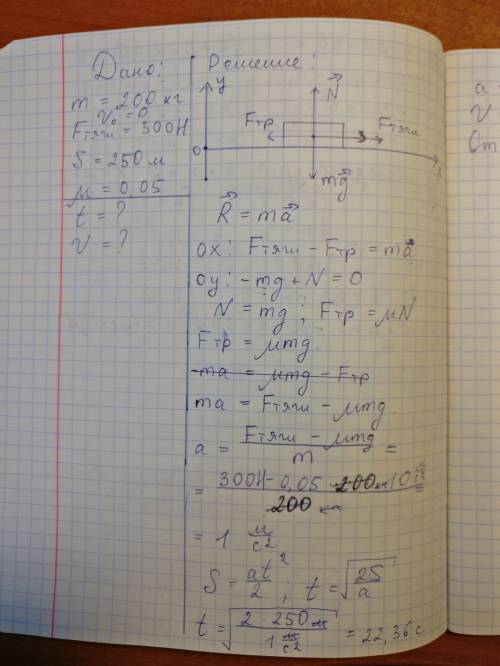 Дано:
m = 200 кг
v₀ = 0
Fтяги = 300Н
S = 250 м
μ = 0,05
t = ?
v = ?
Решение:
y
N
Fтр
Fтяги
0
x
mg
R = ma
ох: Fтяги - Fтр = ma
оу: -mg + N = 0
N = mg ; Fтр = μN
Fтр = μmg
-ma = μmg - Fтр
ma = Fтяги - μmg
a = Fтяги - μmg / m =
= 300Н - 0,05 · 200кг · 10 м/с² / 200 кг =
= 1 м/с²
S = at²/2 ; t = √2S/a
t = √2 · 250 м / 1 м/с² = 22,36 с
a =
V
От